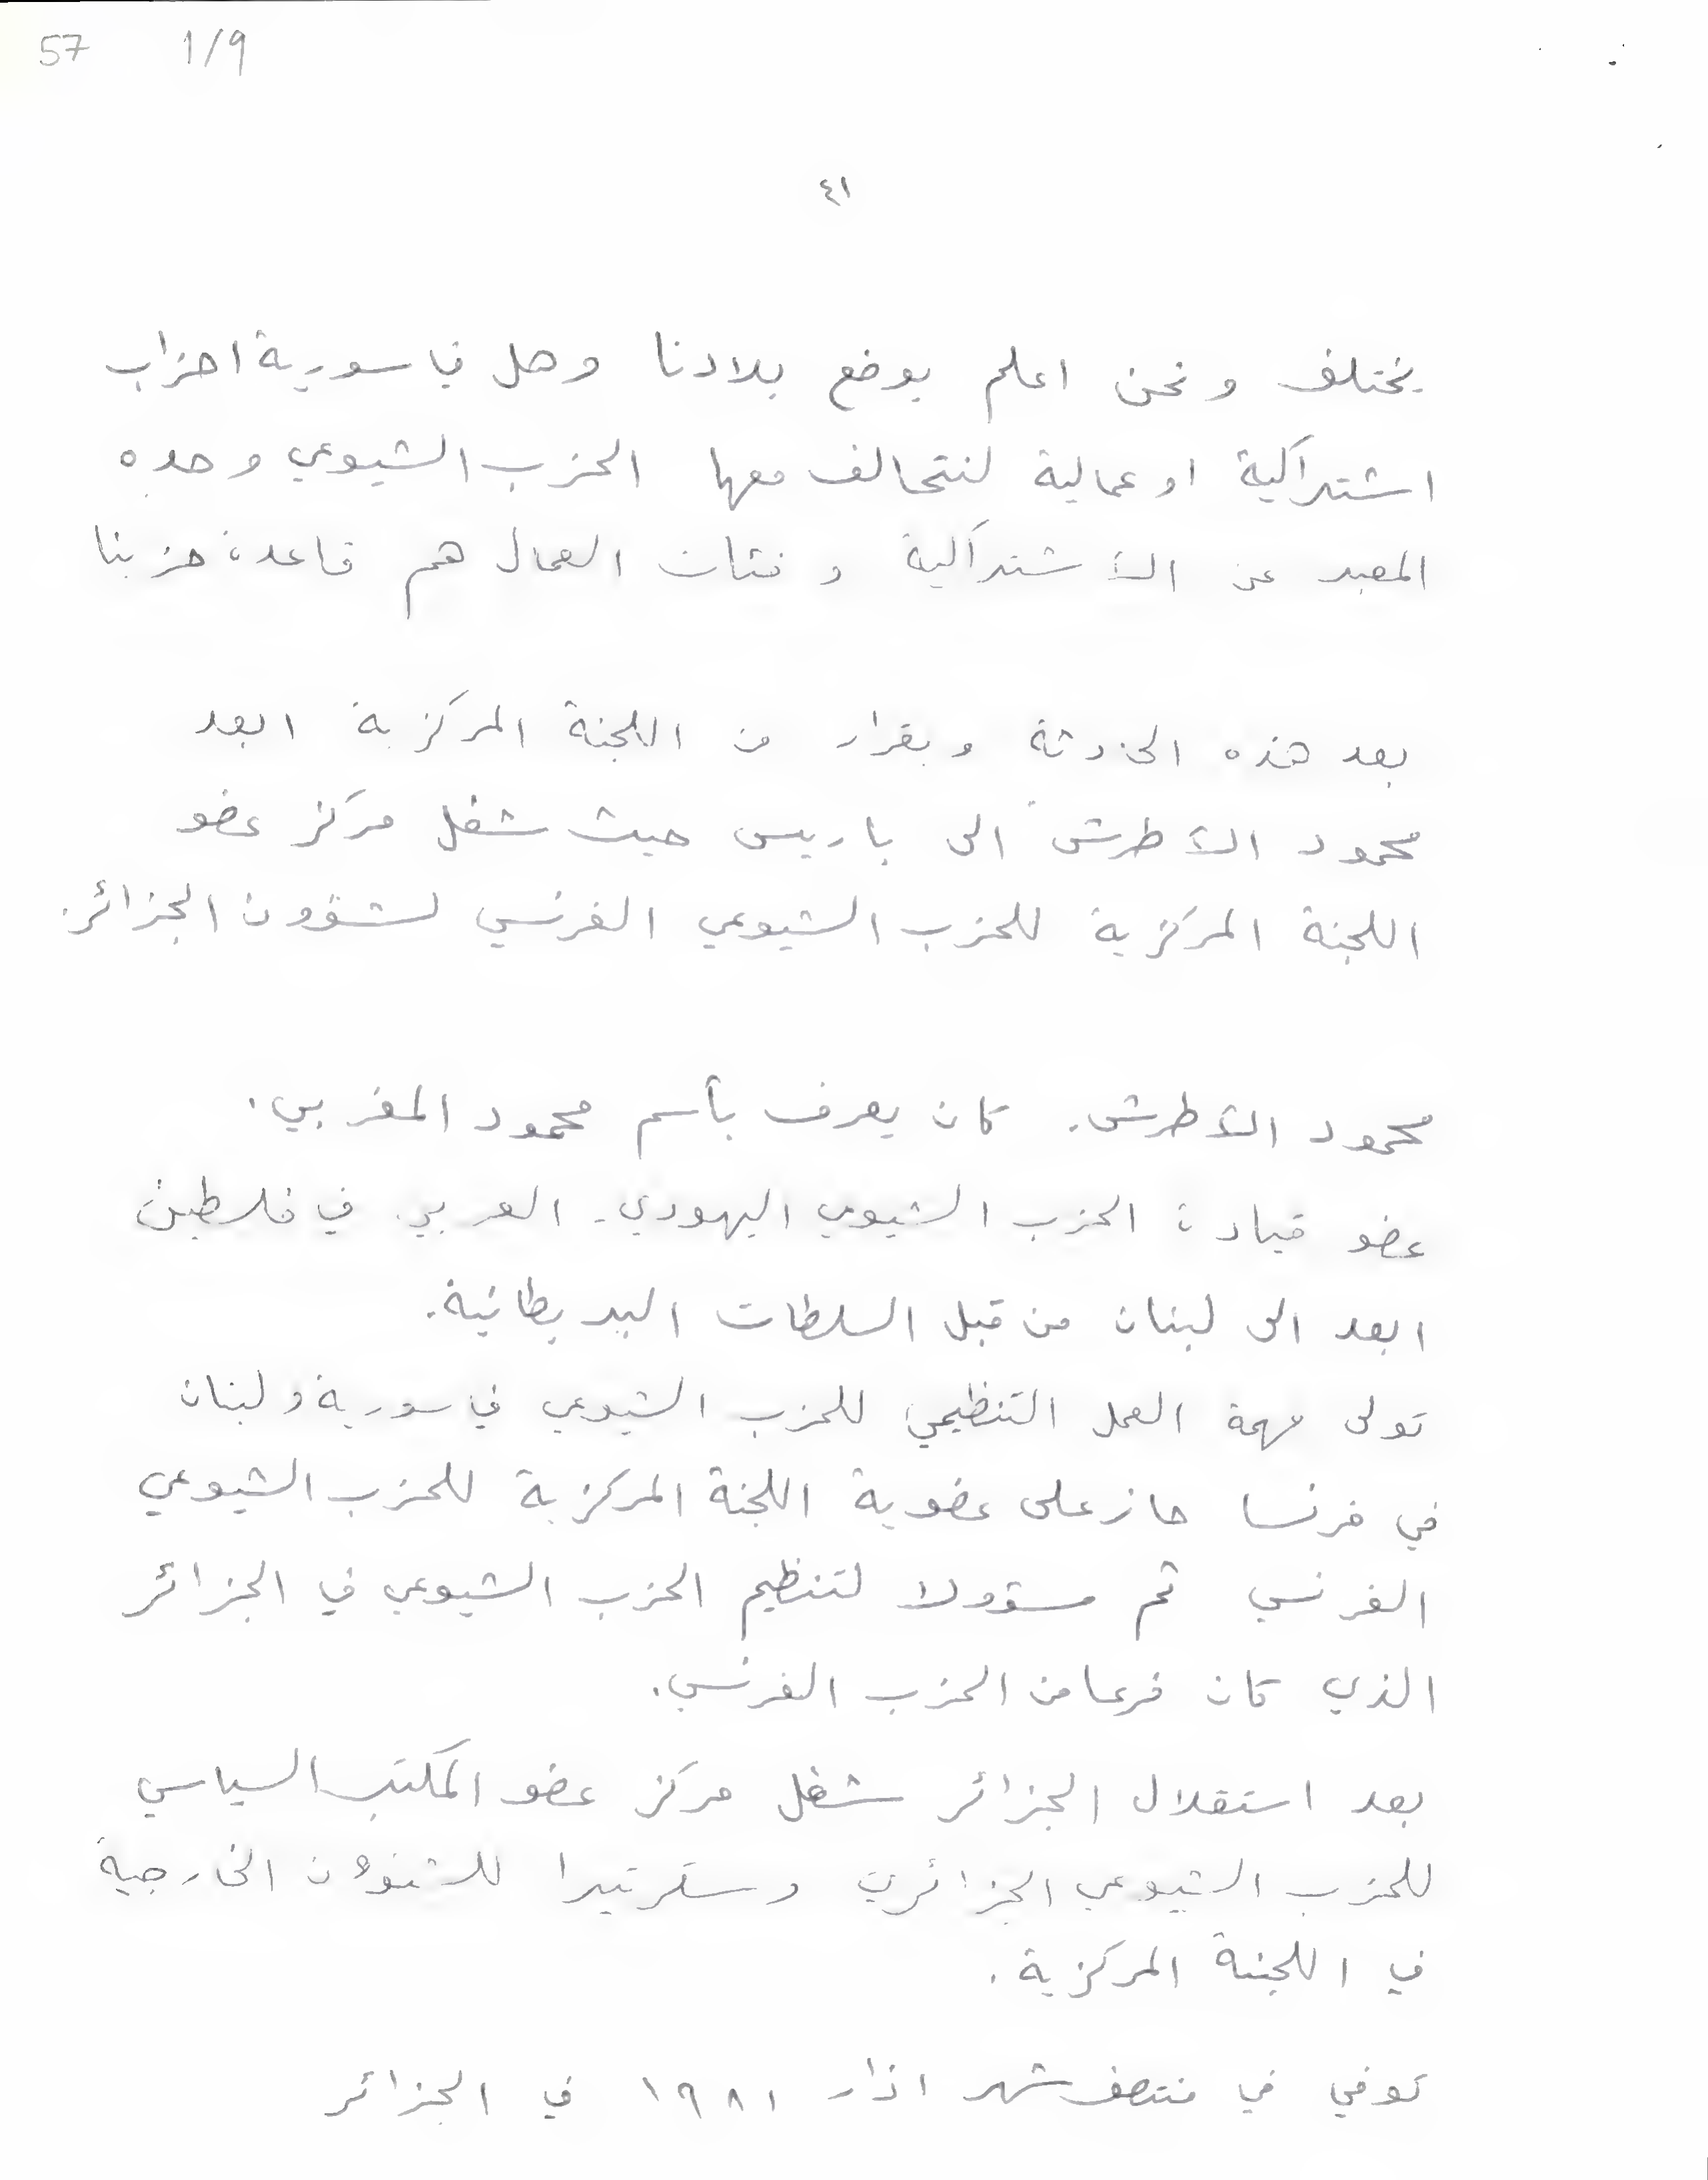 57 1/9
٤١
يختلف ونحن اعلم بوضع بلادنا وهل في سورية احزاب
اشتراكية او عمالية لنتحالف معها الحزب الشيوعي وحده
المعبر عن الاشتراكية وفئات العمال هم قاعدة حزبنا
بعد هذه الحادثة وبقرار من اللجنة المركزية ابعد
محمود الأطرش الى باريس حيث شغل مركز عضو
اللجنة المركزية للحزب الشيوعي الفرنسي لشؤون الجزائر.
محمود الأطرش. كان يعرف بأسم محمود المغربي.
عضو قيادة الحزب الشيوعي اليهودي - العربي في فلسطين
ابعد الى لبنان من قبل السلطات البريطانية.
تولى مهمة العمل التنظيمي للحزب الشيوعي في سورية ولبنان
في فرنسا حاز على عضوية اللجنة المركزية للحزب الشيوعي
الفرنسي ثم مسؤولا لتنظيم الحزب الشيوعي في الجزائر
الذي كان فرعا من الحزب الفرنسي.
بعد استقلال الجزائر شغل مركز عضو المكتب السياسي
للحزب الشيوعي الجزائري وسكرتيرا للشؤون الخارجية
في اللجنة المركزية.
توفي في منتصف شهر اذار ١٩٨١ في الجزائر